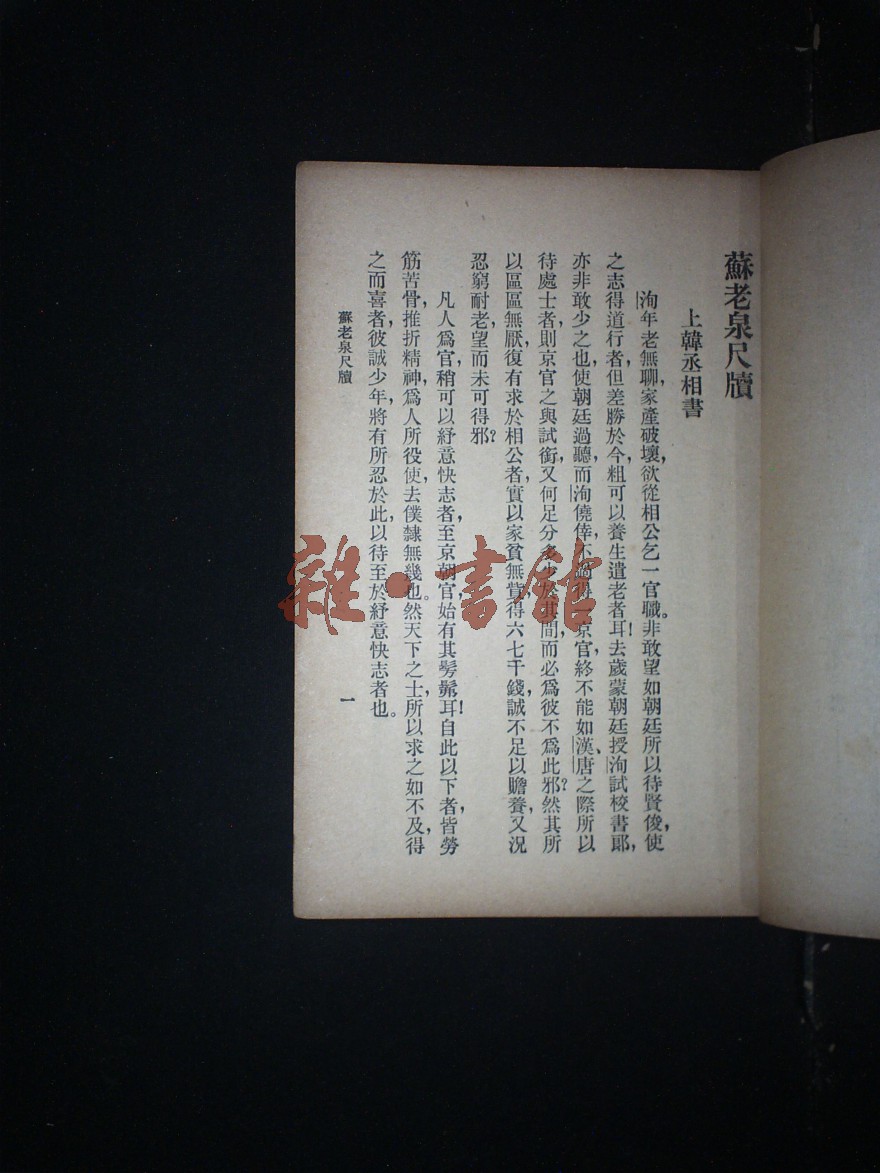 蘇老泉尺牘
上韓丞相書
洵年老無聊，家產破壞，欲從相公乞一官職。非敢望如朝廷所以待賢俊，使
之志得道行者，但差勝於今，粗可以養生遺老者耳！去歲蒙朝廷授洵試校書郎，
亦非敢少之也，使朝廷過聽，而洵僥倖，不過得一京官，終不能如漢、唐之際所以
待處士者，則京官之與試銜，又何足分多少於其間，而必爲彼不爲此邪？然其所
以區區無厭，復有求於相公者，實以家貧無貲，得六七千錢，誠不足以贍養，又況
忍窮耐老，望而未可得邪？
凡人爲官，稍可以紓意快志者，至京朝官始有其髣髴耳！自此以下者，皆勞
筋苦骨，推折精神，爲人所役使，去僕隸無幾也。然天下之士，所以求之如不及，得
之而喜者，彼誠少年，將有所忍於此，以待至於紓意快志者也。
蘇老泉尺牘
一
雜·書館